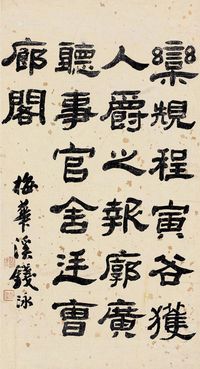 欒規程寅各獲
人爵之報廓廣
聽事官舍廷曹
廊閣
梅華溪錢泳